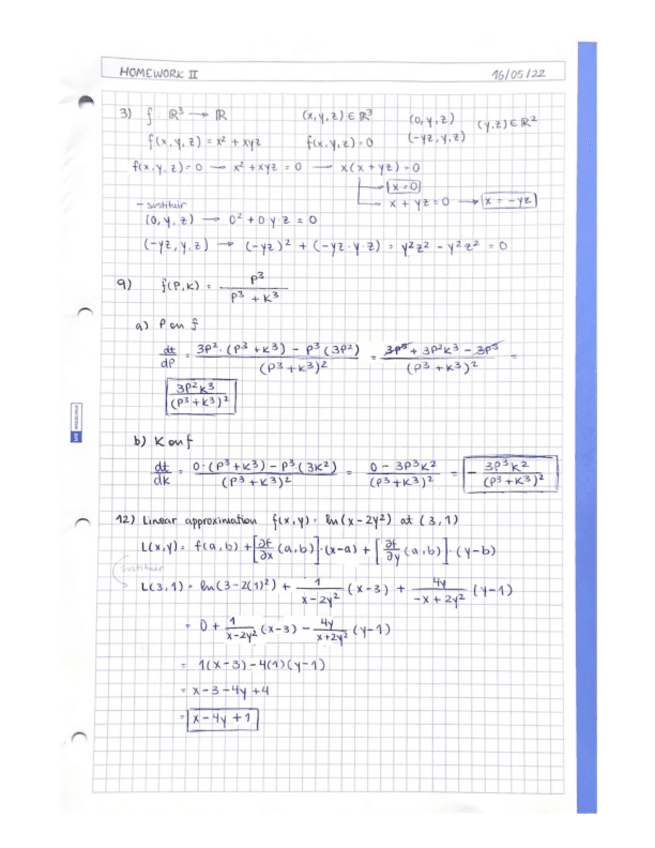 HOMEWORK II 16/05/22
3) f: ℝ³ → ℝ (x,y,z) ∈ ℝ³ (0,y,z) (y,z) ∈ ℝ²
f(x,y,z) = x² + xyz f(x,y,z) = 0 (-yz,y,z)
f(x,y,z) = 0 → x² + xyz = 0 → x(x+yz) = 0
x = 0
x + yz = 0 → x = -yz
- sustituir
(0,y,z) → 0² + 0·y·z = 0
(-yz,y,z) → (-yz)² + (-yz·y·z) = y²z² - y²z² = 0
9) f(P,K) = P³ / (P³ + K³)
a) P on f
dt/dP = (3P²·(P³+K³) - P³(3P²)) / (P³+K³)² = (3P⁵ + 3P²K³ - 3P⁵) / (P³+K³)² =
3P²K³ / (P³+K³)²
b) K on f
dt/dk = (0·(P³+K³) - P³(3K²)) / (P³+K³)² = (0 - 3P³K²) / (P³+K³)² = - 3P³K² / (P³+K³)²
12) Linear approximation f(x,y) = ln(x-2y²) at (3,1)
L(x,y) = f(a,b) + [∂f/∂x (a,b)]·(x-a) + [∂f/∂y (a,b)]·(y-b)
sustituir
L(3,1) = ln(3-2(1)²) + 1/(x-2y²) (x-3) + 4y/(-x+2y²) (y-1)
= 0 + 1/(x-2y²) (x-3) - 4y/(x+2y²) (y-1)
= 1(x-3) - 4(1)(y-1)
= x-3-4y+4
= x-4y+1